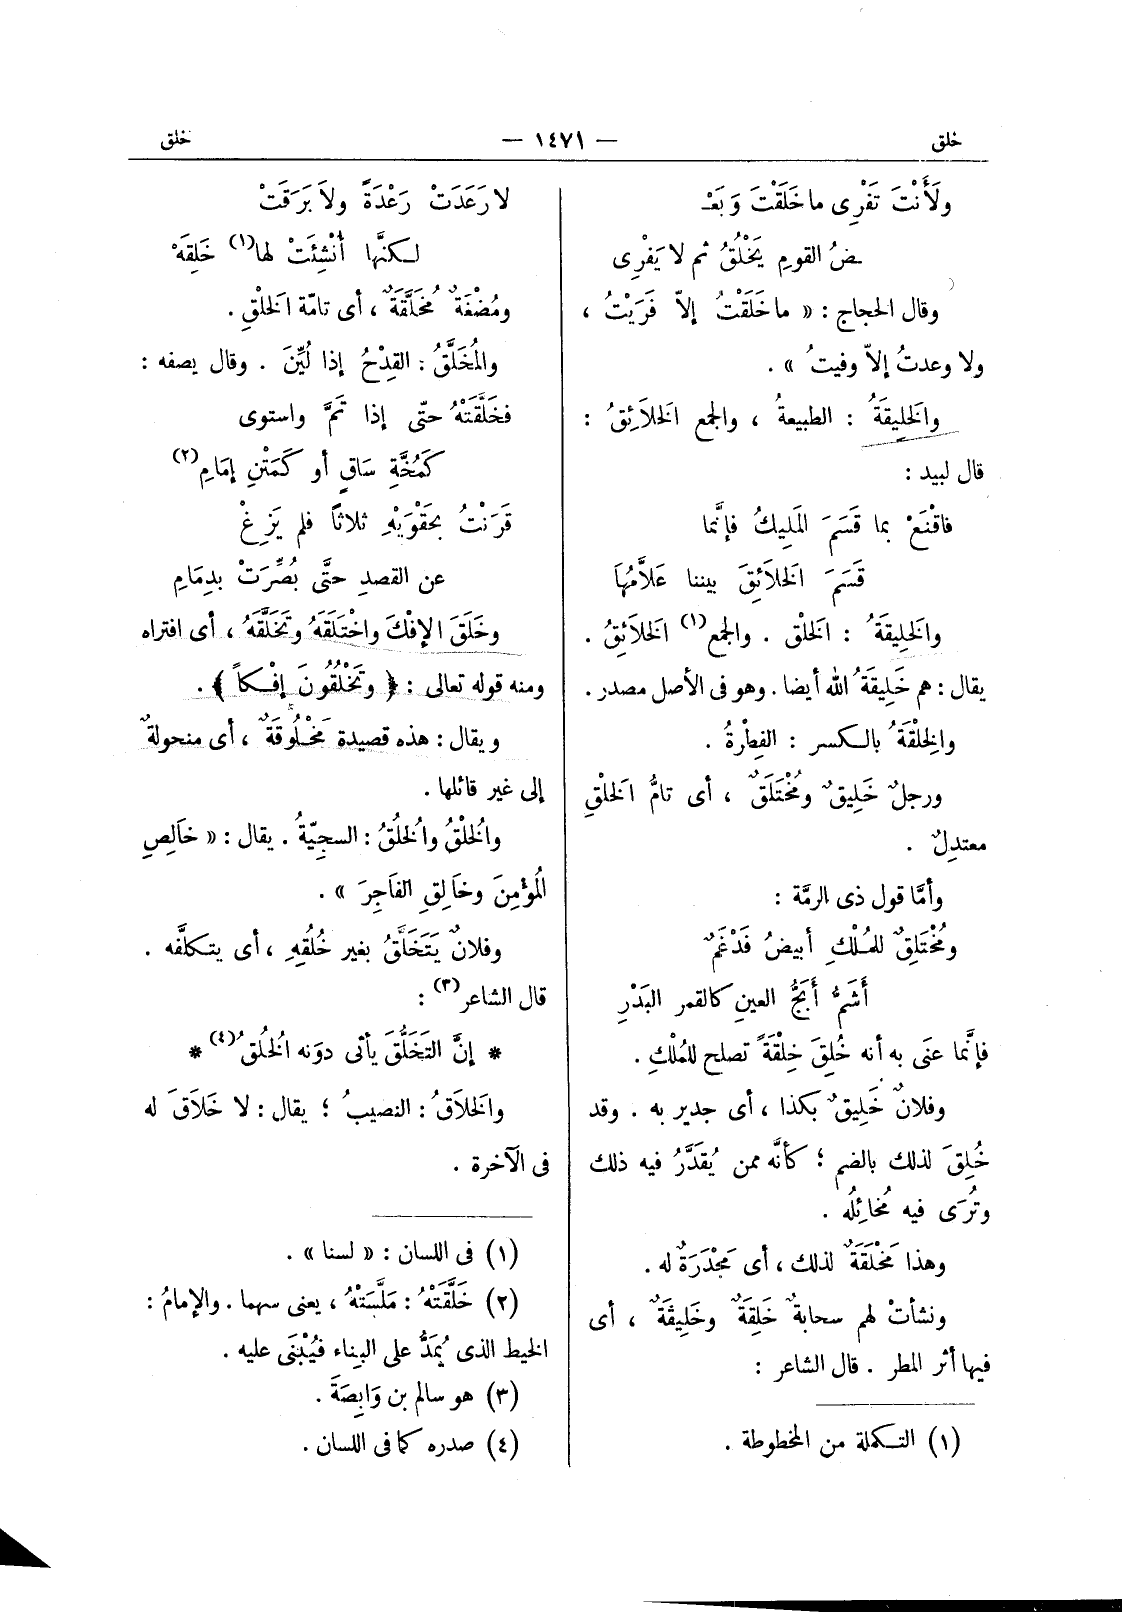 خلق
— ١٤٧١ —
خلق
ولَأَنْتَ تَفْرِى ما خَلَقْتَ وَبَعْـ
ـضُ القومِ يَخْلُقُ ثم لا يَفْرِى
وقال الحجاج : « ما خَلَقْتُ إلاّ فَرَيْتُ ،
ولا وعدتُ إلاّ وفيتُ » .
والَخلِيقَةُ : الطبيعةُ ، والجمع الَخلاَئِقُ :
قال لبيد :
فاقْنَعْ بما قَسَمَ المَلِيكُ فإنَّما
قَسَمَ الَخلاَئِقَ بيننا عَلاَّمُهَا
والَخلِيقَةُ : الَخلْق . والجمع (١) الَخلاَئِقُ .
يقال : هم خَلِيقَةُ الله أيضا . وهو فى الأصل مصدر .
والِخلْقَةُ بالكسر : الفِطْرةُ .
ورجلٌ خَلِيقٌ ومُخْتَلَقٌ ، أى تامُّ الَخلْقِ
معتدِلٌ .
وأمَّا قول ذى الرمَّة :
ومُخْتَلِقٌ للمُلْكِ أبيضُ فَدْغَمٌ
أَشَمُّ أَبَجُّ العينِ كالقمر البَدْرِ
فإنَّما عنَى به أنه خُلِقَ خِلْقَةً تصلح للمُلْكِ .
وفلانٌ خَلِيقٌ بكذا ، أى جدير به . وقد
خُلِقَ لذلك بالضم ؛ كأنَّه ممن يُقَدَّرُ فيه ذلك
وتُرَى فيه مُخائِلُه .
وهذا مَخْلَقَةٌ لذلك ، أى مَجْدَرَةٌ له .
ونشأتْ لهم سحابةٌ خَلِقَةٌ وخَلِيقَةٌ ، أى
فيها أثر المطر . قال الشاعر :
(١) التكملة من المخطوطة .
لا رَعَدَتْ رَعْدَةً ولاَ بَرَقَتْ
لكنَّها أُنْشِئَتْ لها (١) خَلِقَهْ
ومُضْغَةٌ مُخَلَّقَةٌ ، أى تامّة الَخلْقِ .
والمُخَلَّقُ : القِدْحُ إذا لُيِّنَ . وقال يصفه :
فخَلَّقَتْهُ حتّى إذا تَمَّ واستوى
كَمُخَّةِ سَاقٍ أو كَمَتْنِ إمَامِ (٢)
قَرَنْتُ بحَقْوَيْهِ ثلاثاً فلم يَزِغْ
عن القصدِ حتَّى بُصِّرَتْ بدِمَامِ
وخَلَقَ الإفْكَ واخْتَلَقَهُ وتَخَلَّقَهُ ، أى افتراه
ومنه قوله تعالى : ﴿ وتَخْلُقُونَ إفْكاً ﴾ .
ويقال : هذه قصيدة مَخْلُوقَةٌ ، أى منحولةٌ
إلى غير قائلها .
والُخلْقُ والُخلُقُ : السجيّةُ . يقال : « خَالِصِ
المُؤْمِنَ وخَالِقِ الفَاجِرَ » .
وفلانٌ يَتَخَلَّقُ بغير خُلُقِهِ ، أى يتكلَّفه .
قال الشاعر (٣) :
* إنَّ التَخَلُّقَ يأتى دوَنه الُخلُقُ (٤) *
والَخلاَقُ : النصيبُ ؛ يقال : لا خَلاَقَ له
فى الآخرة .
(١) فى اللسان : « لسنا » .
(٢) خَلَّقَتْهُ : مَلَّسَتْهُ ، يعنى سهما . والإمامُ :
الخيط الذى يُمَدُّ على البناء فيُبْنَى عليه .
(٣) هو سالم بن وَابِصَةَ .
(٤) صدره كما فى اللسان .